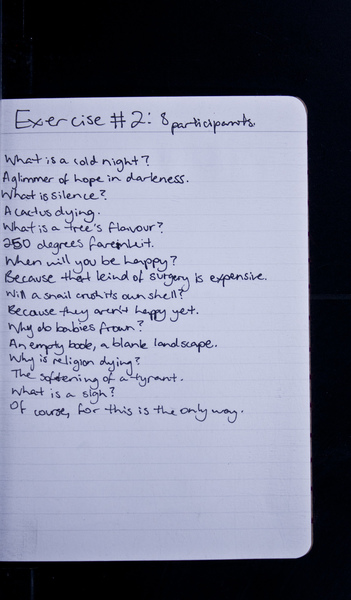 Exercise #2: 8 participants.
What is a cold night?
A glimmer of hope in darkness.
What is silence?
A cactus dying.
What is a tree's flavour?
250 degrees farenheit.
When will you be happy?
Because that kind of surgery is expensive.
Will a snail crush its own shell?
Because they aren't happy yet.
Why do babies frown?
An empty book, a blank landscape.
Why is religion dying?
The softening of a tyrant.
What is a sigh?
Of course, for this is the only way.